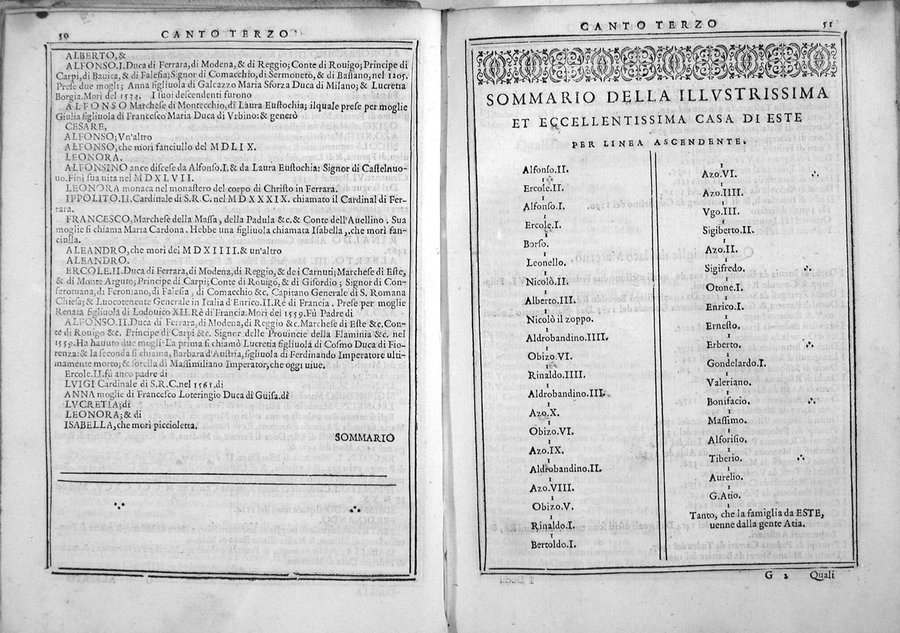 50 CANTO TERZO
ALBERTO, &
ALFONSO.I. Duca di Ferrara, di Modena, & di Reggio; Conte di Rouigo; Principe di
Carpi, di Bauica, & di Falesia; Signor di Comacchio, di Sermoneto, & di Bassano, nel 1205.
Prese due mogli; Anna figliuola di Galeazzo Maria Sforza Duca di Milano; & Lucretia
Borgia. Morì del 1534. I suoi descendenti furono
ALFONSO Marchese di Montecchio, di Laura Eustochia; ilquale prese per moglie
Giulia figliuola di Francesco Maria Duca di Vrbino: & generò
CESARE,
ALFONSO; Vn'altro
ALFONSO, che morì fanciullo del MDLIX.
LEONORA.
ALFONSINO anco discese da Alfonso.I. & da Laura Eustochia: Signor di Castelnuo-
uo. Finì sua uita nel MDXLVII.
LEONORA monaca nel monastero del corpo di Christo in Ferrara.
IPPOLITO.II. Cardinale di S.R.C. nel MDXXXIX. chiamato il Cardinal di Fer-
rara.
FRANCESCO, Marchese della Massa, della Padula &c. & Conte dell'Auellino. Sua
moglie si chiama Maria Cardona. Hebbe una figliuola chiamata Isabella, che morì fan-
ciulla.
ALEANDRO, che morì del MDXIIII. & un'altro
ALEANDRO.
ERCOLE.II. Duca di Ferrara, di Modena, di Reggio, & de i Carnuti; Marchese di Este,
& di Monte Arguto; Principe di Carpi; Conte di Rouigo, & di Gisordio; Signor di Con-
feromana, di Feromano, di Falesia, di Comacchio &c. Capitano Generale di S. Romana
Chiesa; & Luocotenente Generale in Italia d'Enrico.II. Rè di Francia. Prese per moglie
Renata figliuola di Lodouico XII. Rè di Francia. Morì del 1559. Fù Padre di
ALFONSO.II. Duca di Ferrara, di Modena, di Reggio &c. Marchese di Este &c. Con-
te di Rouigo &c. Principe di Carpi &c. Signor delle Prouincie della Flaminia &c. nel
1559. Ha hauuto due mogli. La prima si chiamò Lucretia figliuola di Cosmo Duca di Fio-
renza: & la seconda si chiama, Barbara d'Austria, figliuola di Ferdinando Imperatore ulti-
mamente morto; & sorella di Massimiliano Imperator, che oggi uiue.
Ercole.II. fù anco padre di
LVIGI Cardinale di S.R.C. nel 1561. di
ANNA moglie di Francesco Loteringio Duca di Guisa. di
LVCRETIA; di
LEONORA; & di
ISABELLA, che morì piccioletta.
SOMMARIO
CANTO TERZO 51
SOMMARIO DELLA ILLVSTRISSIMA
ET ECCELLENTISSIMA CASA DI ESTE
PER LINEA ASCENDENTE.
Alfonso.II.
Ercole.II.
Alfonso.I.
Ercole.I.
Borso.
Leonello.
Nicolò.II.
Alberto.III.
Nicolò il zoppo.
Aldrobandino.IIII.
Obizo.VI.
Rinaldo.IIII.
Aldrobandino.III.
Azo.X.
Obizo.VI.
Azo.IX.
Aldrobandino.II.
Azo.VIII.
Obizo.V.
Rinaldo.I.
Bertoldo.I.
Azo.VI.
Azo.IIII.
Vgo.III.
Sigiberto.II.
Azo.II.
Sigifredo.
Otone.I.
Enrico.I.
Ernesto.
Erberto.
Gondelardo.I.
Valeriano.
Bonifacio.
Massimo.
Alforisio.
Tiberio.
Aurelio.
G.Atio.
Tanto, che la famiglia da ESTE,
uenne dalla gente Atia.
G 2 Quali